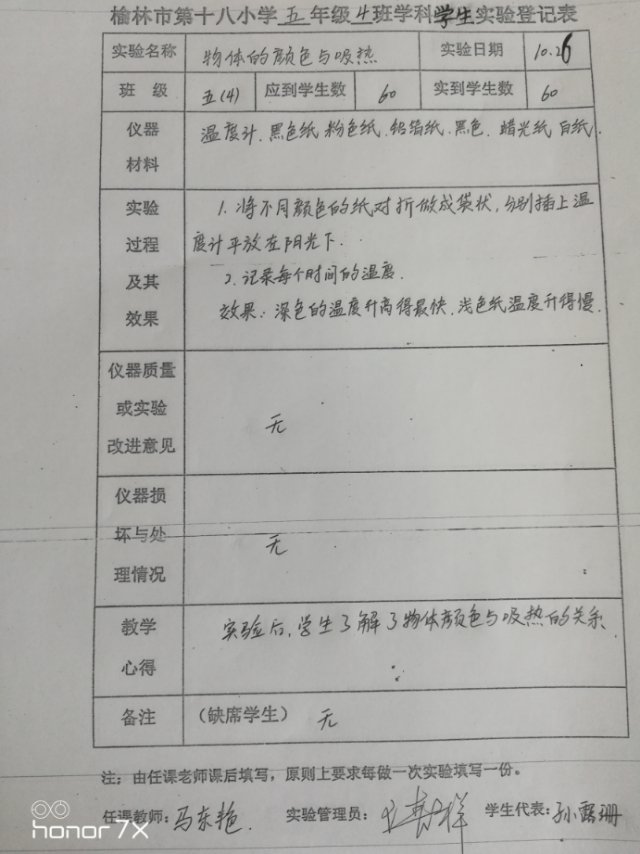 榆林市第十八小学五年级4班学科学生实验登记表
实验名称 物体的颜色与吸热 实验日期 10.26
班 级 五(4) 应到学生数 60 实到学生数 60
仪器 温度计.黑色纸.粉色纸.铝箔纸.黑色.蜡光纸 白纸.
材料
实验 1.将不同颜色的纸对折做成袋状,分别插上温
过程 度计平放在阳光下.
及其 2.记录每个时间的温度.
效果 效果:深色的温度升高得最快.浅色纸温度升得慢.
仪器质量
或实验 无
改进意见
仪器损
坏与处 无
理情况
教学 实验后,学生了解了物体颜色与吸热的关系.
心得
备注 (缺席学生) 无
注:由任课老师课后填写,原则上要求每做一次实验填写一份。
任课教师:马东艳. 实验管理员: 学生代表:孙露珊
honor 7X